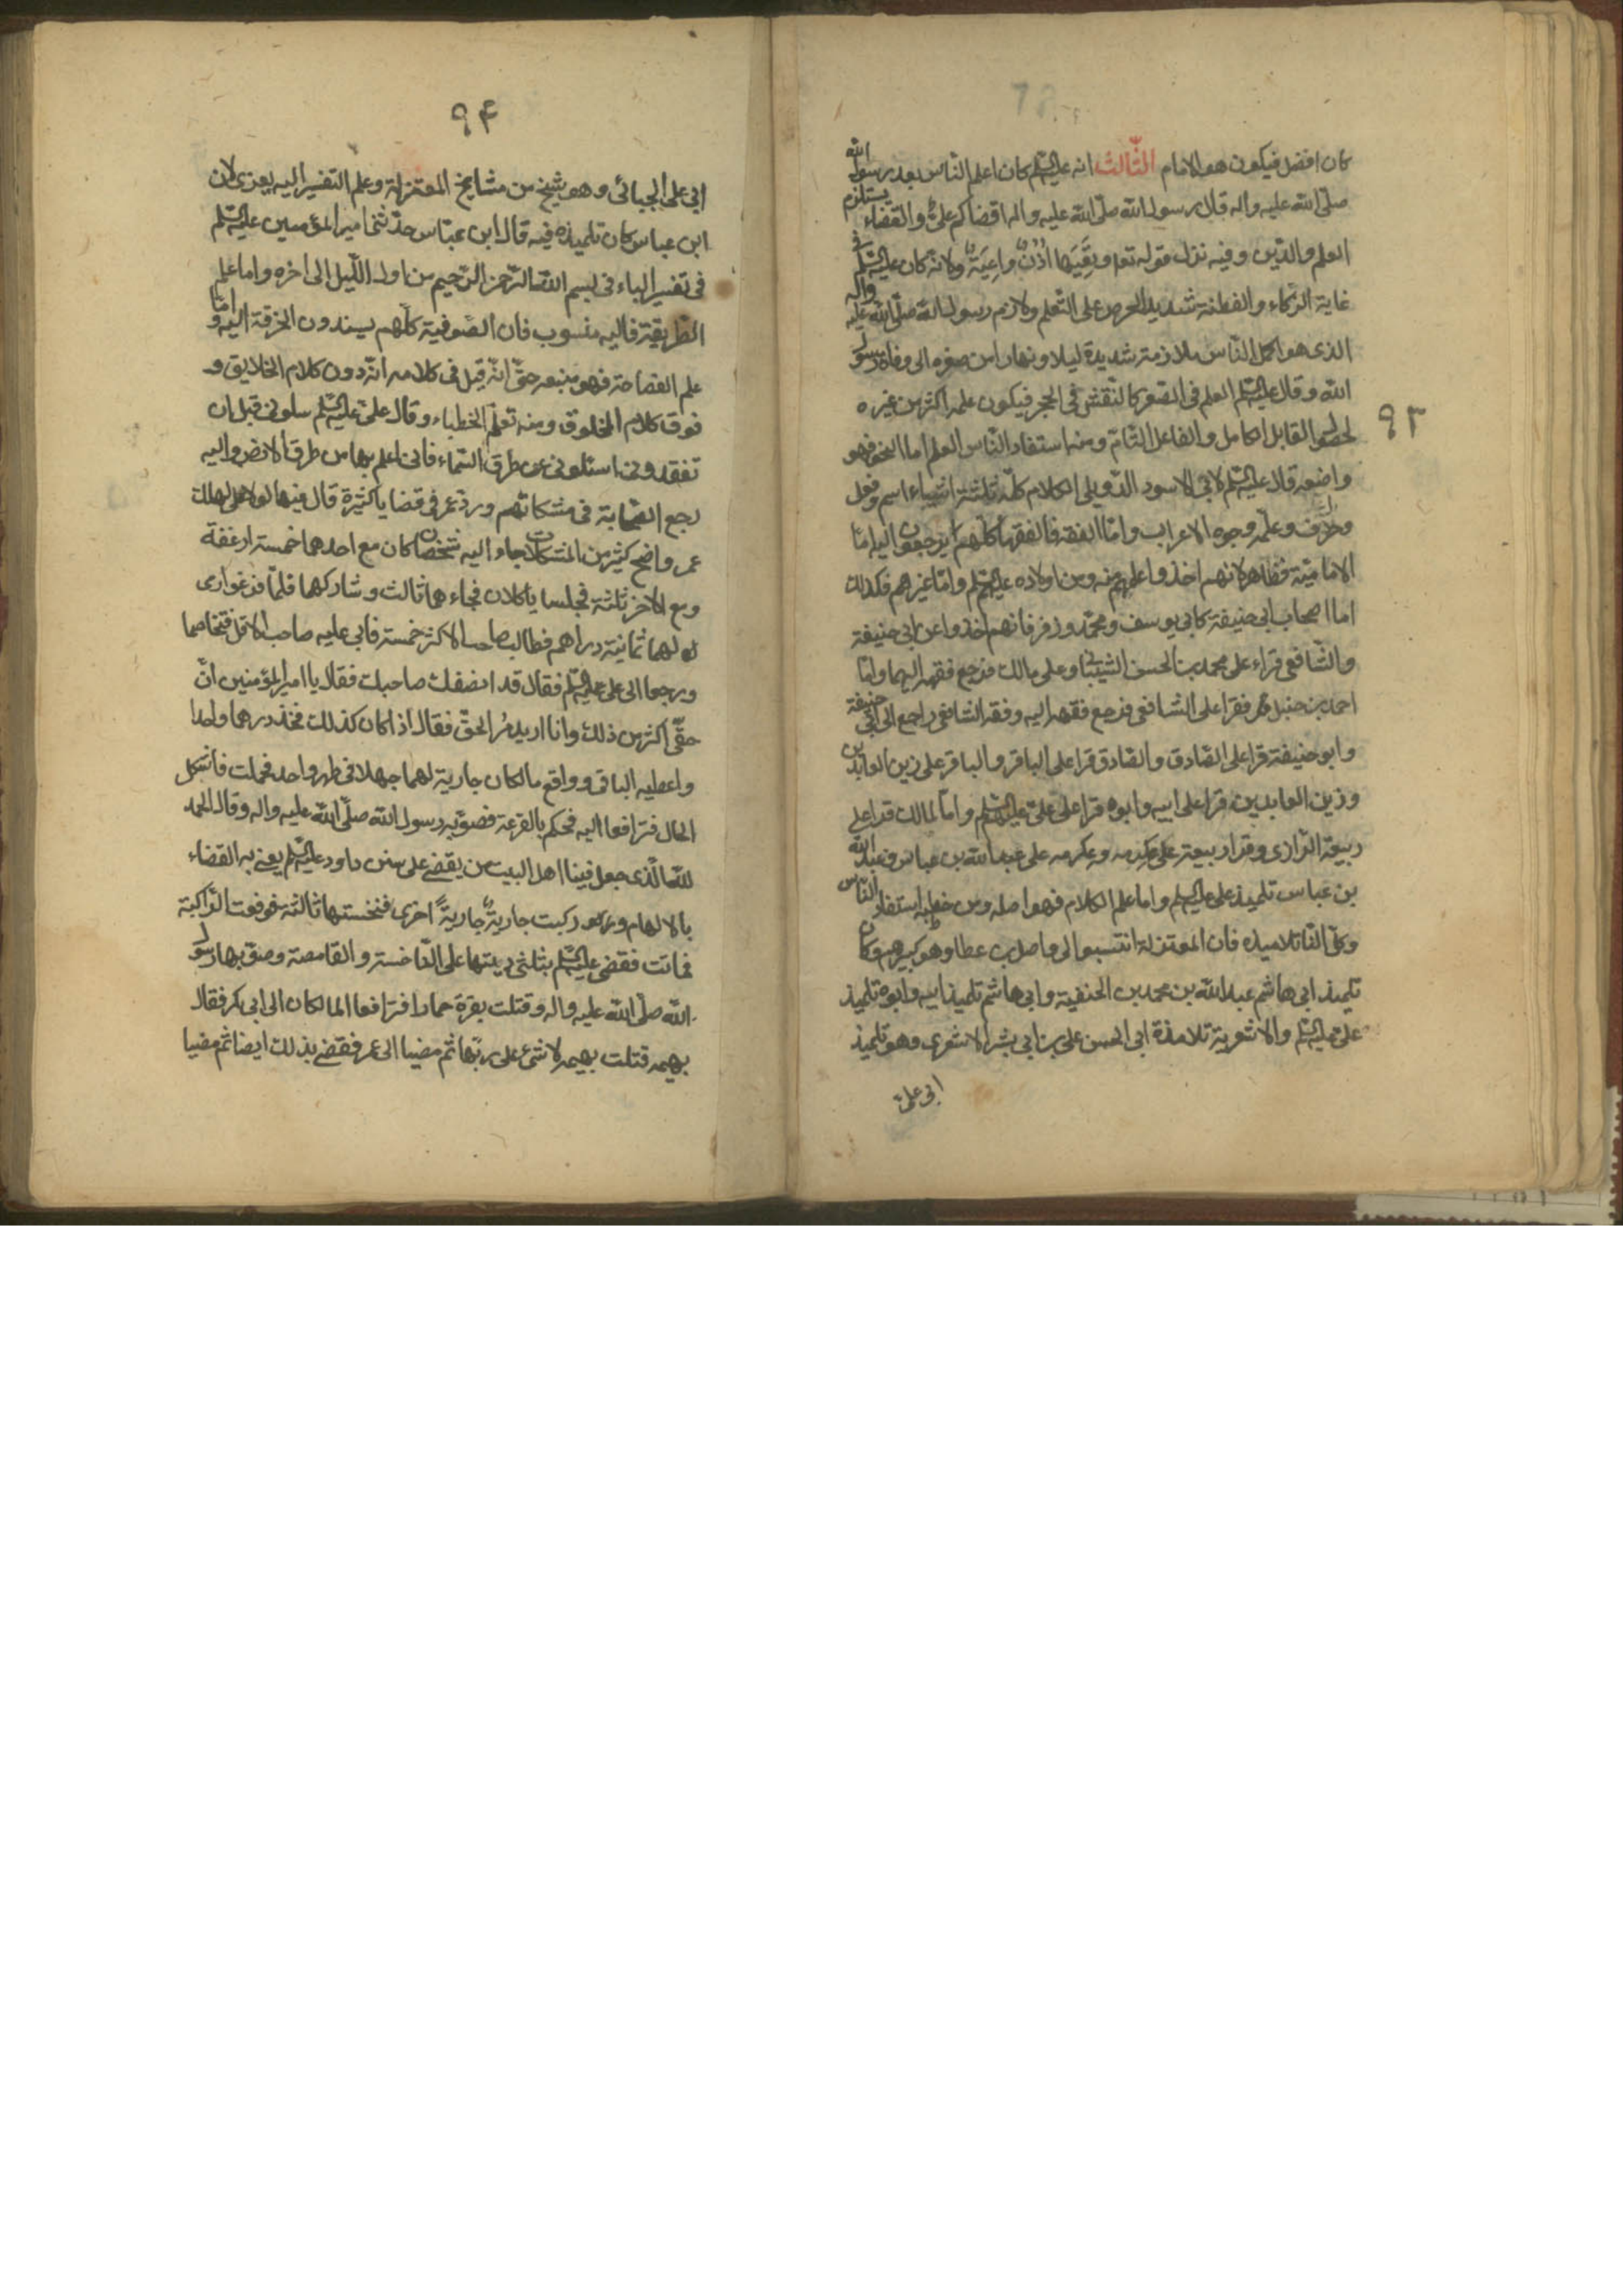 ٩٣
كان افضل فيكون هو الامام الثّالث انه عليه السّلم كان اعلم النّاس بعد رسول الله
صلّى الله عليه واله قال رسول الله صلّى الله عليه واله اقضاكم علىّ والقضاء يستلزم
العلم والدّين وفيه نزل قوله تعا وتعيها اُذُنٌ واعِيَةٌ ولانّه كان عليه السّلم فى
غاية الذّكاء والفطنة شديد الحرص على التّعلم ولازم رسول الله صلّى الله عليه واله
الذى هو اكمل النّاس ملازمة شديدة ليلا ونهارا من صغره الى وفاة رسول
الله وقال عليه السّلم العلم فى الصّغر كالنّقش فى الحجر فيكون علمه اكثر من غيره
لحصول القابل الكامل والفاعل التّامّ ومنه استفاد النّاس العلم اما النحو فهو
واضعه قال عليه السّلم لابى الاسود الدّويلى الكلام كلّه ثلثة اشياء اسم وفعل
وحرف وعلّمه وجوه الاعراب وامّا الفقه فالفقهاء كلّهم يرجعون اليه امّا
الاماميّة فظاهر لانهم اخذوا علمهم منه ومن اولاده عليهم السّلم وامّا غيرهم فكذلك
اما اصحاب ابى حنيفة كابى يوسف ومحمّد وزفر فانهم اخذوا عن ابى حنيفة
والشّافعى قراء على محمد بن الحسن الشيبانى وعلى مالك فرجع فقهه اليهما وامّا
احمد بن حنبل فقرا على الشافعى فرجع فقهه اليه وفقه الشافعى راجع الى ابى حنيفة
وابو حنيفة قرا على الصّادق والصّادق قرا على الباقر والباقر على زين العابدين
وزين العابدين قرا على ابيه وابوه قرا على علىّ عليهم السّلم وامّا لمالك قرا على
ربيعة الرّازى وقرا ربيعة على عكرمه وعكرمه على عبد الله بن عباس وعبد الله
بن عباس تلميذ على عليه السلم واما علم الكلام فهو اصله ومن خطبه استفاد النّاس
وكلّ النّاس تلاميذه فان المعتزلة انتسبوا لى واصل بن عطا وهو كبيرهم وكان
تلميذ ابى هاشم عبد الله بن محمد بن الحنفية وابى هاشم تلميذ ابيه وابوه تلميذ
علىّ عليه السّلم والاشعرية تلامذة ابى الحسن على بن ابى بشر الاشعرى وهو تلميذ
ابى علىّ
٩۴
ابى على الجبائى وهو شيخ من مشايخ المعتزلة وعلم التفسير اليه يعزى لان
ابن عباس كان تلميذه فيه قال ابن عبّاس حدّثنى امير المؤمنين عليه السّلم
فى تفسير الباء فى بسم الله الرّحمن الرّحيم من اول اللّيل الى اخره واما علم
الطّريقة فاليه منسوب فان الصّوفية كلّهم يسندون الخرقة اليه وامّا
علم الفصاحة فهو منبعه حتّى انّه قيل فى كلامه انّه دون كلام الخالق و
فوق كلام المخلوق ومنه تعلّم الخطباء وقال علىّ عليه السّلم سلونى قبل ان
تفقدونى اسئلونى عن طرق السّماء فانى اعلم بها من طرق الارض واليه
رجع الصّحابة فى مشكلاتهم وردّ عمر فى قضايا كثيرة قال فيها لولا على لهلك
عمر واضح كثير من المشكلات جاء اليه شخصان كان مع احدهما خمسة ارغفة
ومع الاخر ثلثة فجلسا ياكلان فجاءهما ثالث وشاركهما فلمّا فرغوا رمى
لهما ثمانية دراهم فطالب صاحب الاكثر خمسة فابى عليه صاحب الاقل فتخاصما
ورجعا الى على عليه السّلم فقال قد انصفك صاحبك فقال يا امير المؤمنين انّ
حقّى اكثر من ذلك وانا اريد مُرّ الحقّ فقال اذا كان كذلك فخذ درهما واحدا
واعطيه الباقى وواقع مالكان جارية لهما جهلا فى طهر واحد فحملت فاشكل
الحال فترافعا اليه فحكم بالقرعة فصوّبه رسول الله صلّى الله عليه واله وقال الحمد
لله الّذى جعل فينا اهل البيت من يقضى على سنن داود عليه السّلم يعنى به القضاء
بالالهام وركبت جاريةٌ جاريةً اخرى فنخستها ثالثة فوقعت الرّاكبة
فماتت فقضى عليه السّلم بثلثى ديتها على النّاخسة والقامصة وصوّبها رسول
الله صلّى الله عليه واله وقتلت بقرة حمارا فترافعا المالكان الى ابى بكر فقال
بهيمه قتلت بهيمه لا شئ على ربّها ثم مضيا الى عمر فقضى بذلك ايضا ثم مضيا